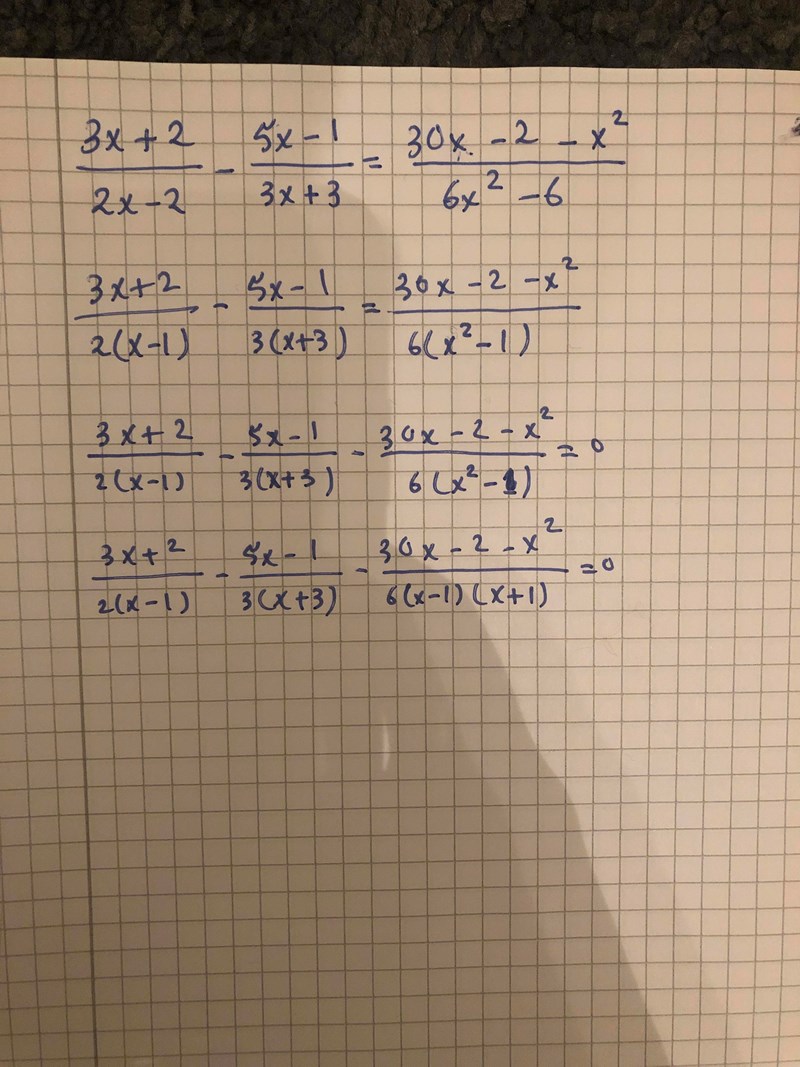 (3x+2)/(2x-2) - (5x-1)/(3x+3) = (30x-2-x²)/(6x²-6)
(3x+2)/(2(x-1)) - (5x-1)/(3(x+3)) = (30x-2-x²)/(6(x²-1))
(3x+2)/(2(x-1)) - (5x-1)/(3(x+3)) - (30x-2-x²)/(6(x²-1)) = 0
(3x+2)/(2(x-1)) - (5x-1)/(3(x+3)) - (30x-2-x²)/(6(x-1)(x+1)) = 0